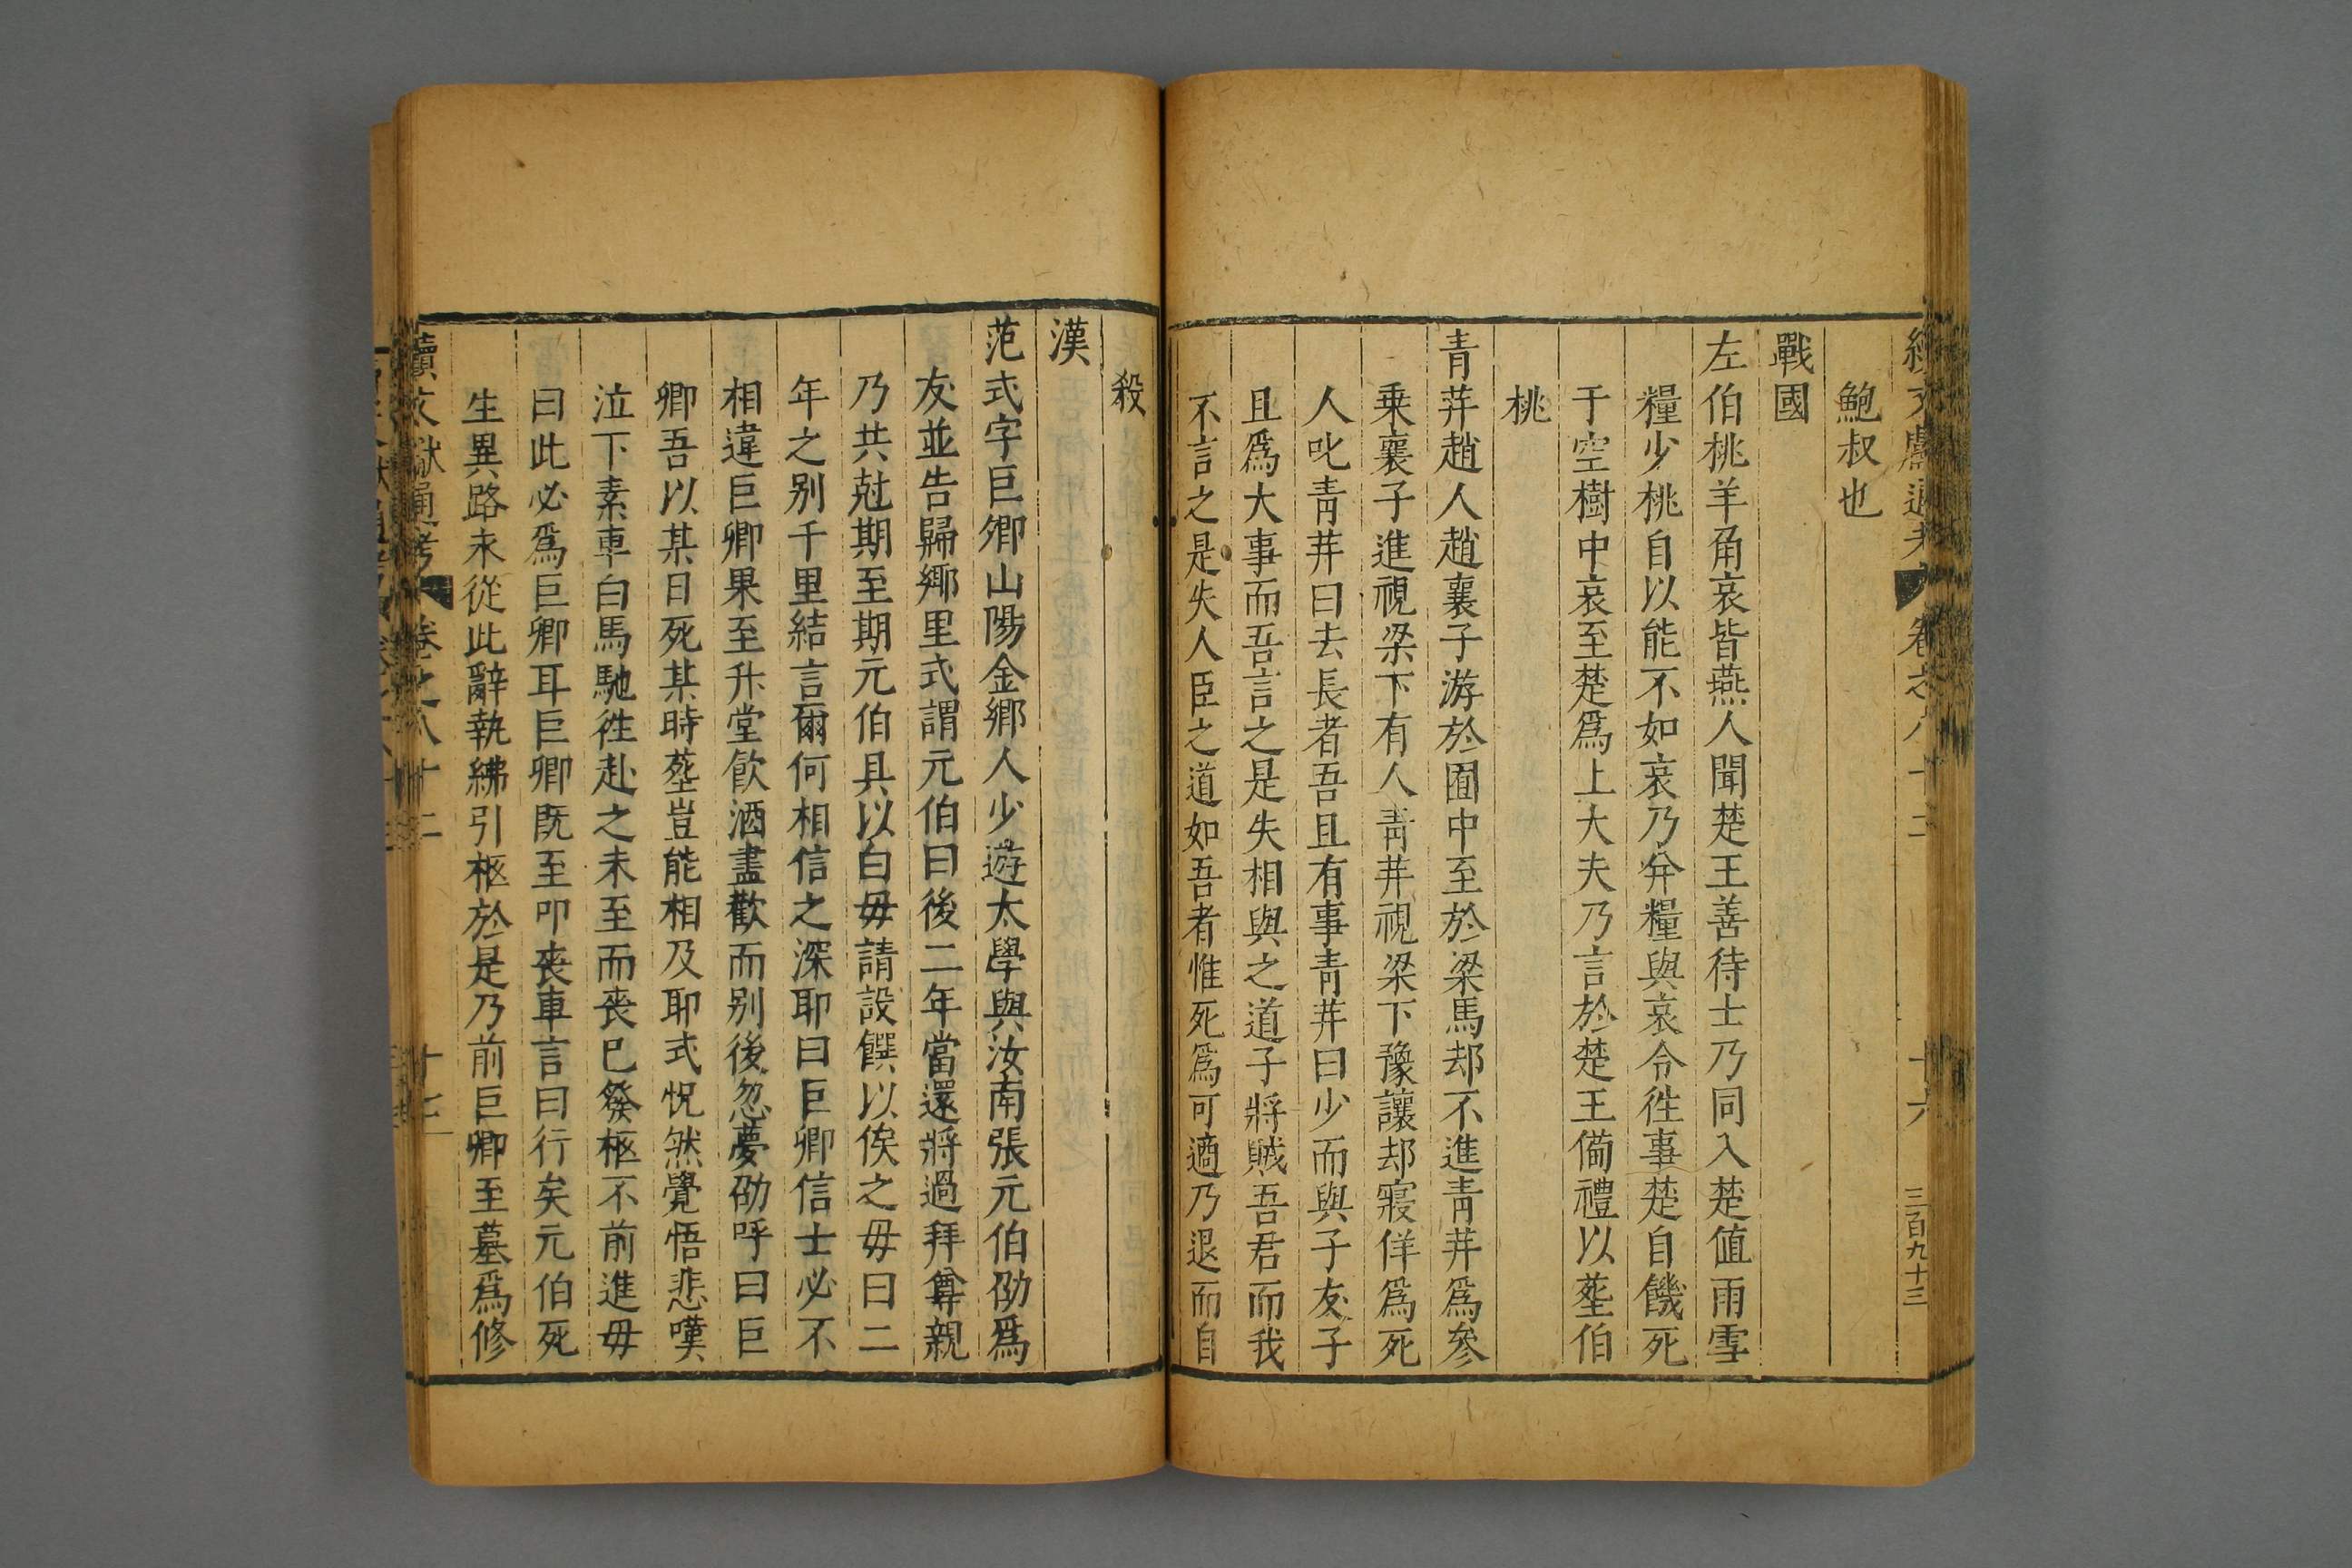 續文獻通考 卷之八十二 十六 三百九十三
鮑叔也
戰國
左伯桃羊角哀皆燕人聞楚王善待士乃同入楚值雨雪
糧少桃自以能不如哀乃并糧與哀令徃事楚自饑死
于空樹中哀至楚爲上大夫乃言於楚王備禮以塟伯
桃
青荓趙人趙襄子游於囿中至於梁馬却不進青荓爲參
乗襄子進視梁下有人青荓視梁下豫讓却寢佯爲死
人叱青荓曰去長者吾且有事青荓曰少而與子友子
且爲大事而吾言之是失相與之道子將賊吾君而我
不言之是失人臣之道如吾者惟死爲可適乃退而自
殺
漢
范式字巨卿山陽金鄉人少遊太學與汝南張元伯劭爲
友並告歸鄉里式謂元伯曰後二年當還將過拜尊親
乃共尅期至期元伯具以白毋請設饌以俟之毋曰二
年之别千里結言爾何相信之深耶曰巨卿信士必不
相違巨卿果至升堂飲酒盡歡而别後忽夢劭呼曰巨
卿吾以某日死某時塟豈能相及耶式怳然覺悟悲嘆
泣下素車白馬馳徃赴之未至而喪已發柩不前進毋
曰此必爲巨卿耳巨卿既至叩喪車言曰行矣元伯死
生異路永從此辭執紼引柩於是乃前巨卿至墓爲修
續文獻通考 卷之八十二 十七